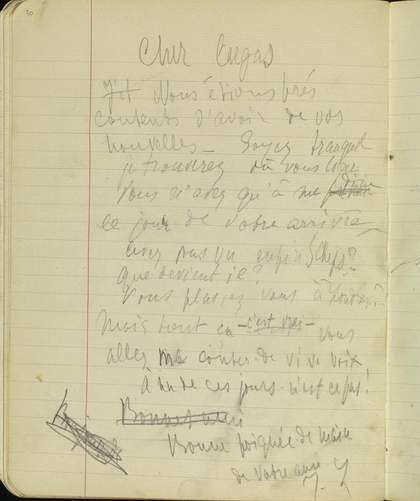 Cher
Nous étions très
contents d'avoir de vos
nouvelles — Soyez tranquil
je trouverez où vous loger
Vous n'avez qu'à me
le jour de votre arrivée
avez vous vu enfin
que devient il?
Vous plaisez vous à
Mais tout ça — c'est vrai — vous
allez me conter de vive voix
à un de ces jours n'est ce pas!
Bonne poignée de main
de votre ami